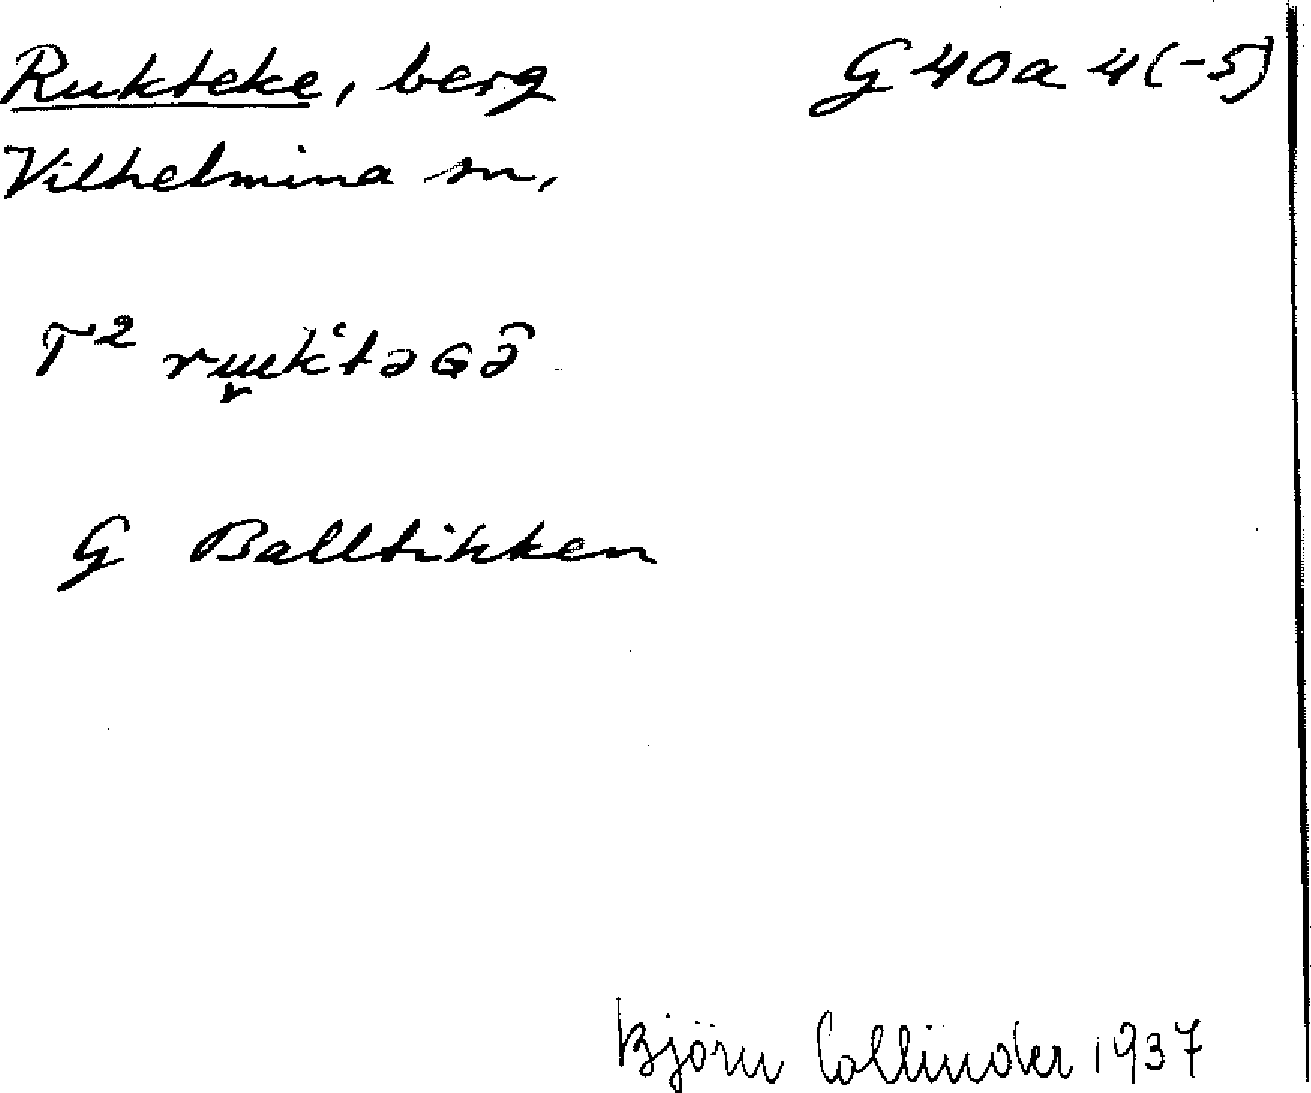 Rukteke, berg G 40a 4(-5)
Vilhelmina sn,
T² ru̬kʻtəɢə̑
G Balltikken
Björn Collinder 1937